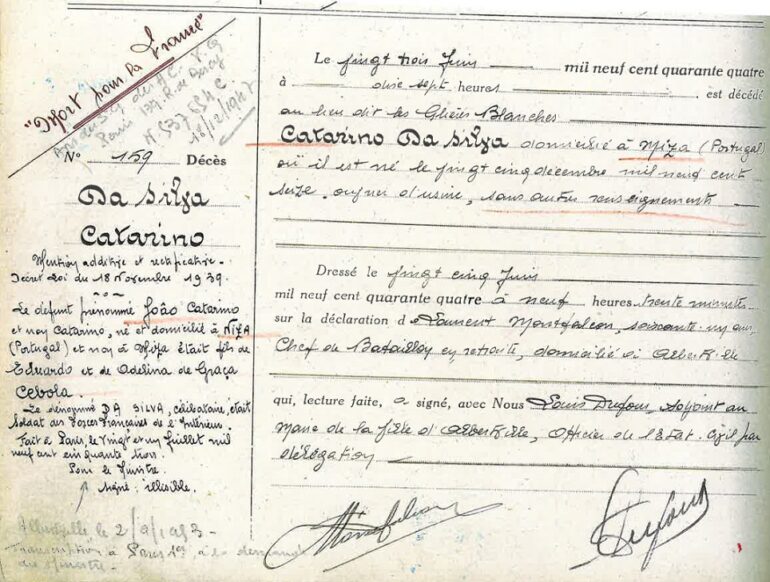 "Mort pour la France"
N° 159 Décès
Da Silva
Catarino
Mention additive et rectificative.
Décret Loi du 18 Novembre 1939.
Le défunt prénommé João Catarino
et non Catarino, né et domicilié à NIZA
(Portugal) et non à Miza était fils de
Eduardo et de Adelina de Graça
Cebola.
Le dénommé DA SILVA, célibataire, était
soldat des Forces Françaises de l'Intérieur.
Fait à Paris, le vingt et un juillet mil
neuf cent cinquante trois.
Pour le Ministre.
signé : illisible.
Albertville le 2/9/1953.
Transcription à Paris 1er à la demande
du Ministre.
Le vingt trois Juin mil neuf cent quarante quatre
à dix sept heures est décédé
au lieu dit les Glières Blanches
Catarino Da Silva domicilié à Miza (Portugal)
où il est né le vingt cinq décembre mil neuf cent
seize. ouvrier d'usine, sans autres renseignements
Dressé le vingt cinq Juin
mil neuf cent quarante quatre à neuf heures trente minutes
sur la déclaration d Laurent Montfalcon, soixante un ans
Chef de Bataillon en retraite, domicilié à Albertville
qui, lecture faite, a signé, avec Nous Louis Dufour, Adjoint au
Maire de la Ville d'Albertville, Officier de l'Etat-Civil par
délégation